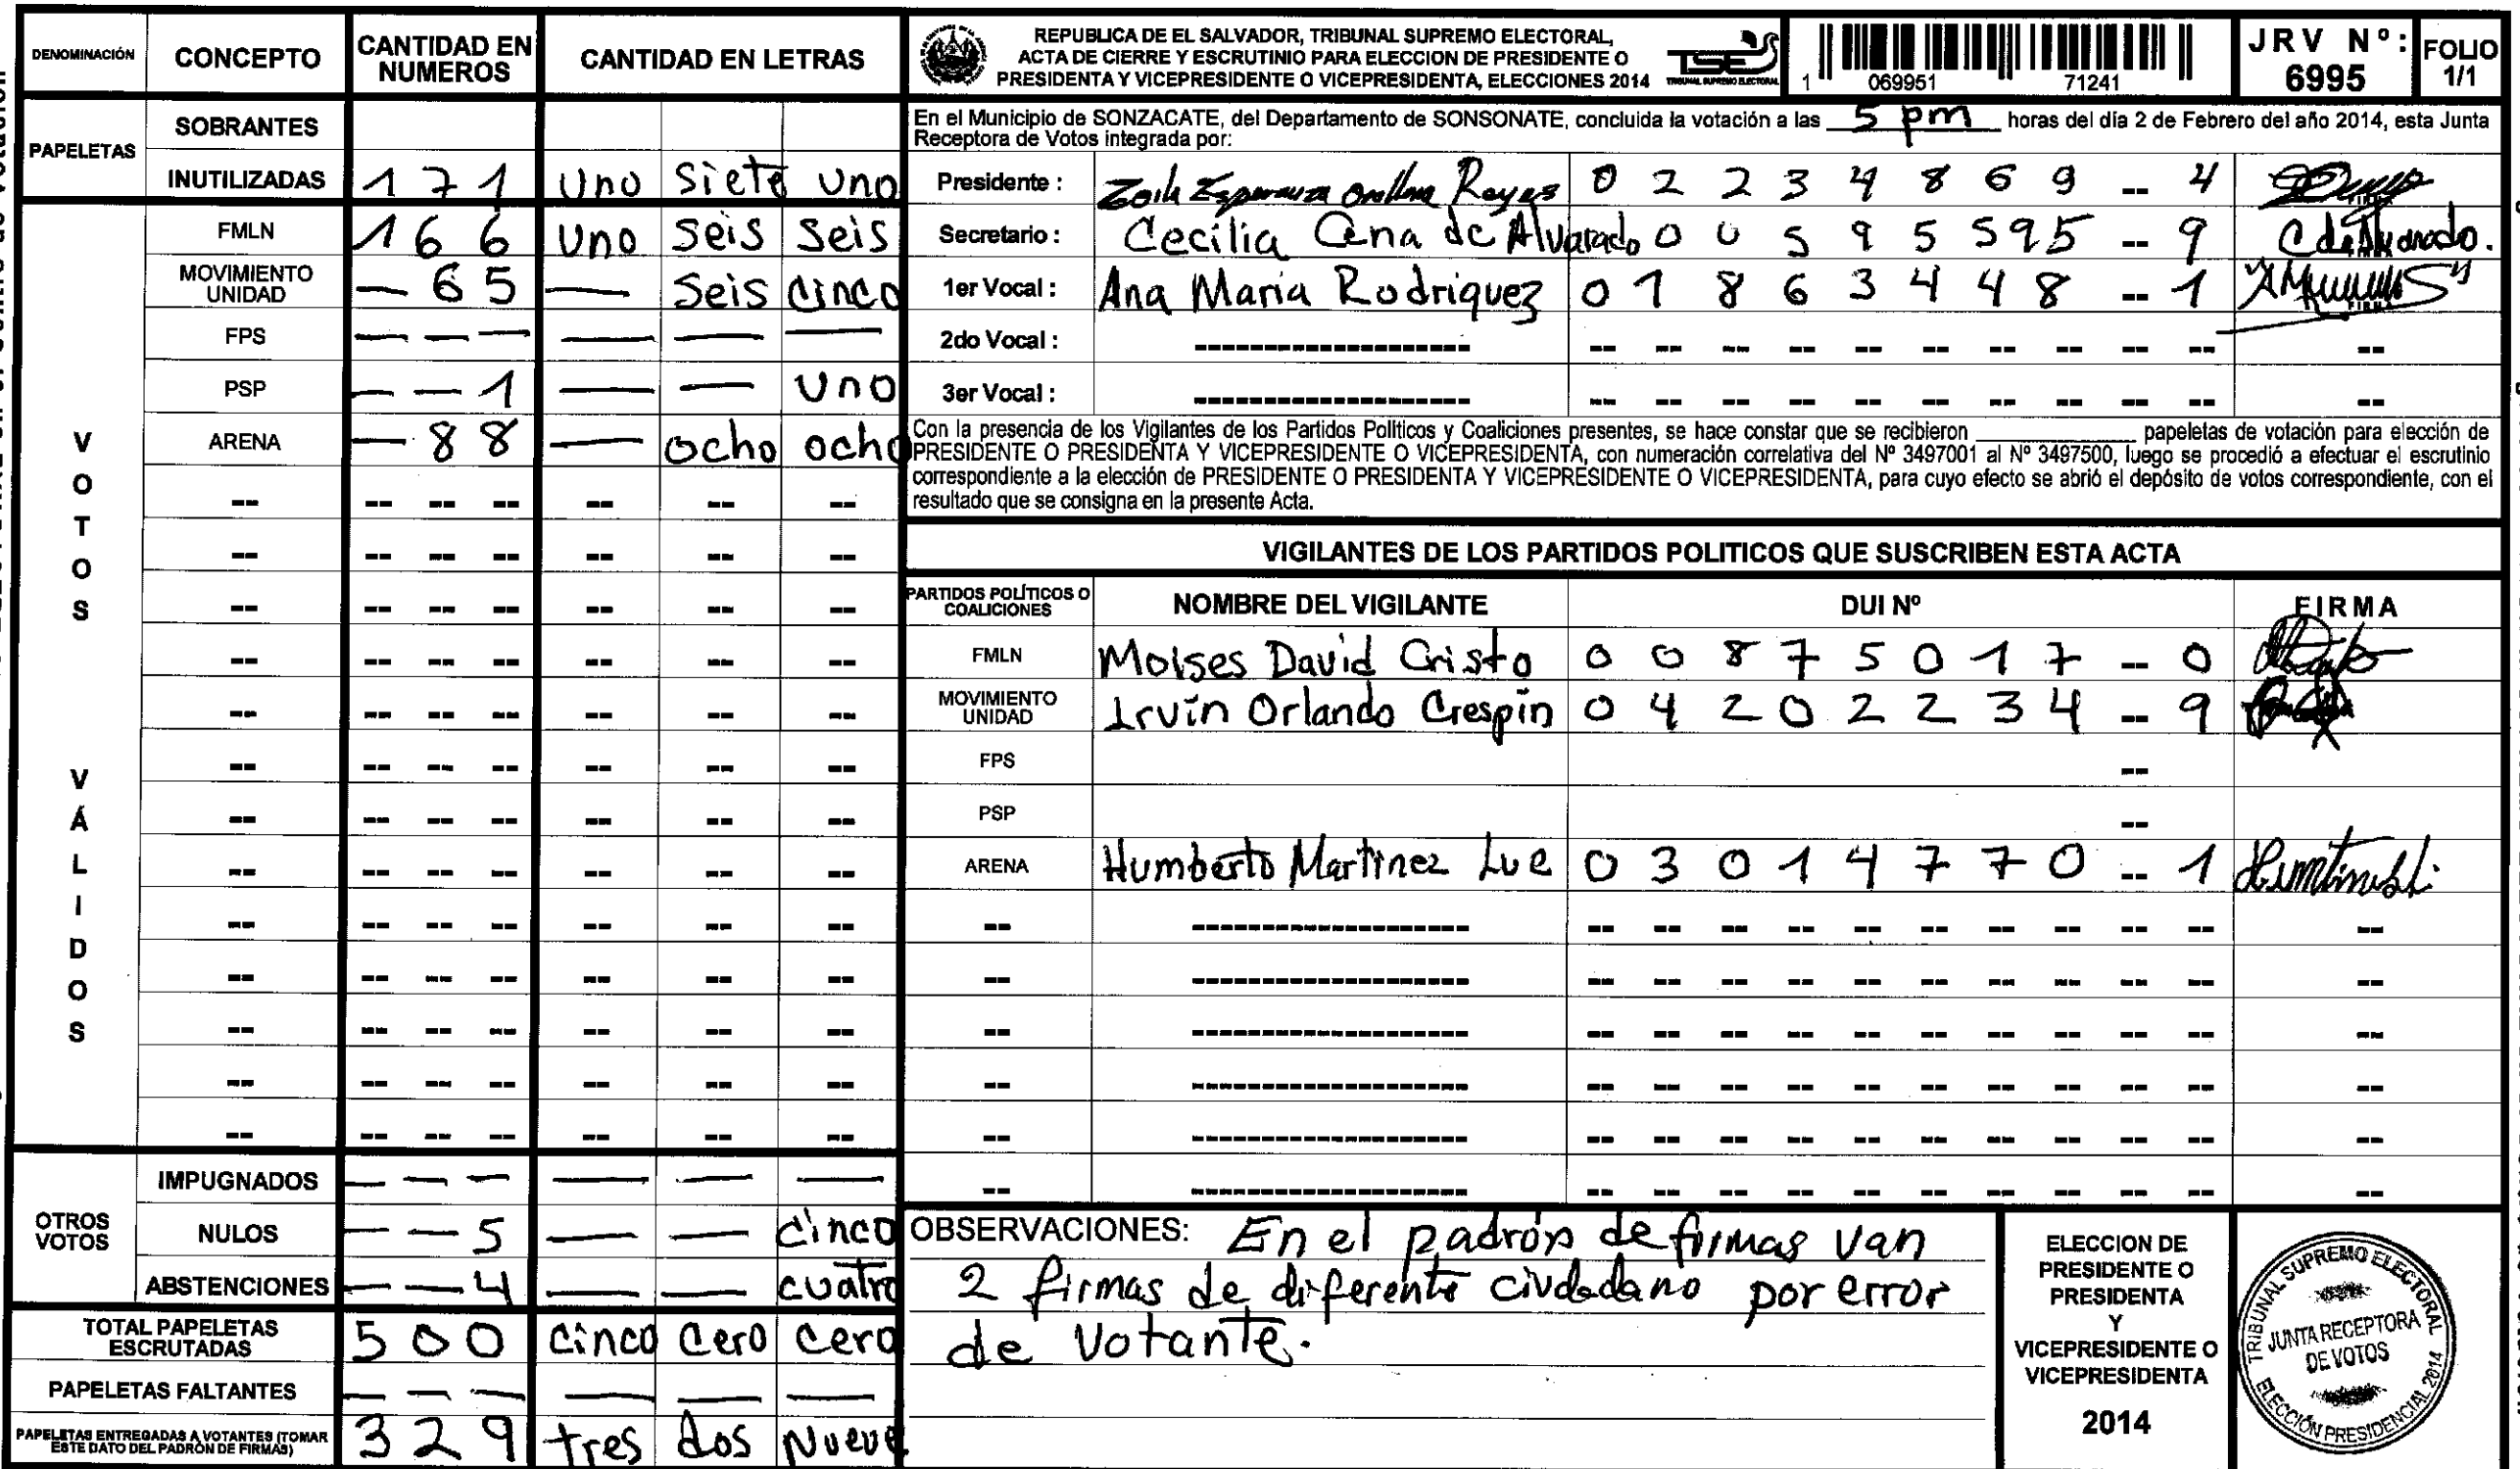 DENOMINACIÓN CONCEPTO CANTIDAD EN NUMEROS CANTIDAD EN LETRAS
PAPELETAS
SOBRANTES
INUTILIZADAS 1 7 1 Uno Siete Uno
VOTOS VÁLIDOS
FMLN 1 6 6 Uno Seis Seis
MOVIMIENTO UNIDAD — 6 5 — Seis Cinco
FPS — — — — — —
PSP — — 1 — — Uno
ARENA — 8 8 — Ocho Ocho
OTROS VOTOS
IMPUGNADOS — — — — — —
NULOS — — 5 — — Cinco
ABSTENCIONES — — 4 — — cuatro
TOTAL PAPELETAS ESCRUTADAS 5 0 0 Cinco Cero Cero
PAPELETAS FALTANTES — — — — — —
PAPELETAS ENTREGADAS A VOTANTES (TOMAR ESTE DATO DEL PADRÓN DE FIRMAS) 3 2 9 tres dos Nueve
REPUBLICA DE EL SALVADOR, TRIBUNAL SUPREMO ELECTORAL,
ACTA DE CIERRE Y ESCRUTINIO PARA ELECCION DE PRESIDENTE O
PRESIDENTA Y VICEPRESIDENTE O VICEPRESIDENTA, ELECCIONES 2014
TSE
TRIBUNAL SUPREMO ELECTORAL
1 069951 71241
JRV Nº: 6995
FOLIO 1/1
En el Municipio de SONZACATE, del Departamento de SONSONATE, concluida la votación a las 5 pm horas del día 2 de Febrero del año 2014, esta Junta
Receptora de Votos integrada por:
Presidente : Zoila Esperanza Orellana Reyes 0 2 2 3 4 8 6 9 -- 4
Secretario : Cecilia Cena de Alvarado 0 0 5 9 5 5 9 5 -- 9 C de Alvarado.
1er Vocal : Ana Maria Rodriquez 0 1 8 6 3 4 4 8 -- 1
2do Vocal :
3er Vocal :
Con la presencia de los Vigilantes de los Partidos Politicos y Coaliciones presentes, se hace constar que se recibieron ________ papeletas de votación para elección de
PRESIDENTE O PRESIDENTA Y VICEPRESIDENTE O VICEPRESIDENTA, con numeración correlativa del Nº 3497001 al Nº 3497500, luego se procedió a efectuar el escrutinio
correspondiente a la elección de PRESIDENTE O PRESIDENTA Y VICEPRESIDENTE O VICEPRESIDENTA, para cuyo efecto se abrió el depósito de votos correspondiente, con el
resultado que se consigna en la presente Acta.
VIGILANTES DE LOS PARTIDOS POLITICOS QUE SUSCRIBEN ESTA ACTA
PARTIDOS POLÍTICOS O COALICIONES NOMBRE DEL VIGILANTE DUI Nº FIRMA
FMLN Moises David Cristo 0 0 8 7 5 0 1 7 -- 0
MOVIMIENTO UNIDAD Irvin Orlando Crespin 0 4 2 0 2 2 3 4 -- 9
FPS --
PSP --
ARENA Humberto Martinez Lue 0 3 0 1 4 7 7 0 -- 1
OBSERVACIONES: En el padrón de firmas van
2 firmas de diferente ciudadano por error
de Votante.
ELECCION DE
PRESIDENTE O
PRESIDENTA
Y
VICEPRESIDENTE O
VICEPRESIDENTA
2014
TRIBUNAL SUPREMO ELECTORAL
JUNTA RECEPTORA
DE VOTOS
ELECCIÓN PRESIDENCIAL 2014